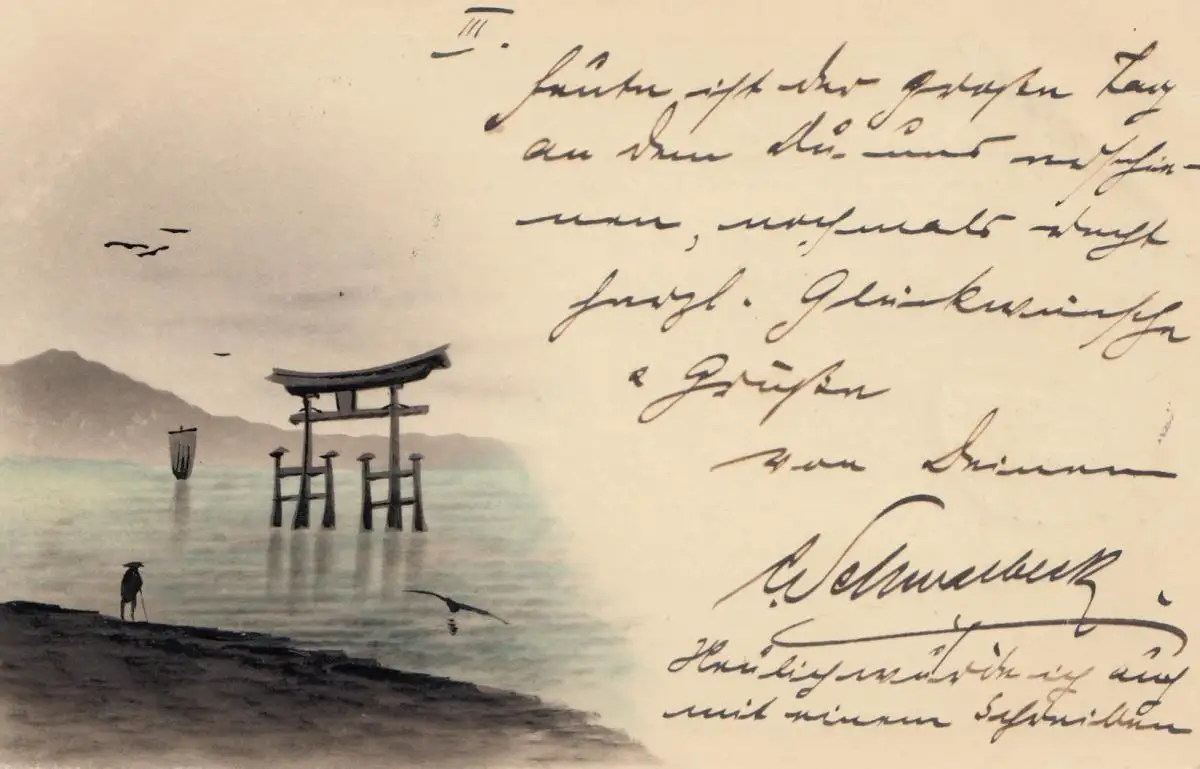 III.
Heute ist der große Tag
an dem Du uns erschie-
nen, nochmals recht
herzl. Glückwünsche
& Grüße
von Deinem
C. Schwalbeck
Neulich wurde ich auch
mit einem Schreiben